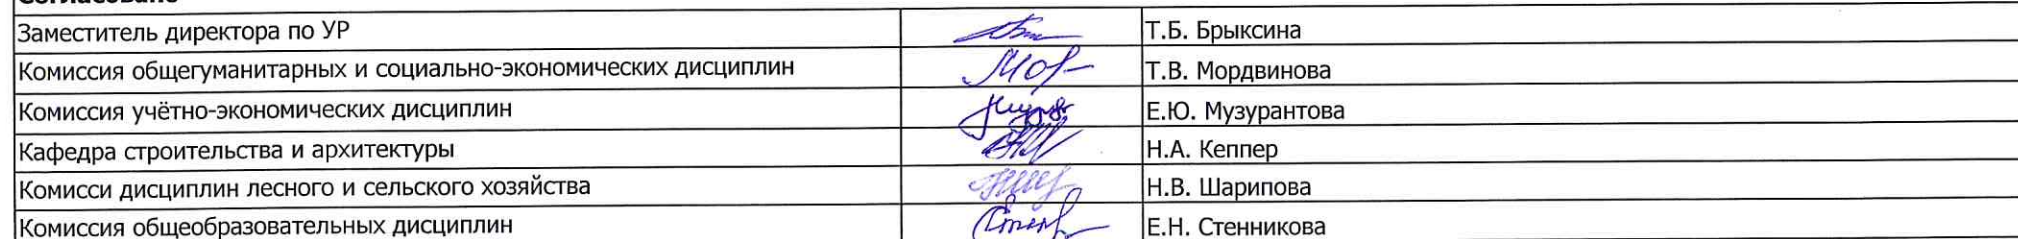 Согласовано
Заместитель директора по УР Т.Б. Брыксина
Комиссия общегуманитарных и социально-экономических дисциплин Т.В. Мордвинова
Комиссия учётно-экономических дисциплин Е.Ю. Музурантова
Кафедра строительства и архитектуры Н.А. Кеппер
Комисси дисциплин лесного и сельского хозяйства Н.В. Шарипова
Комиссия общеобразовательных дисциплин Е.Н. Стенникова